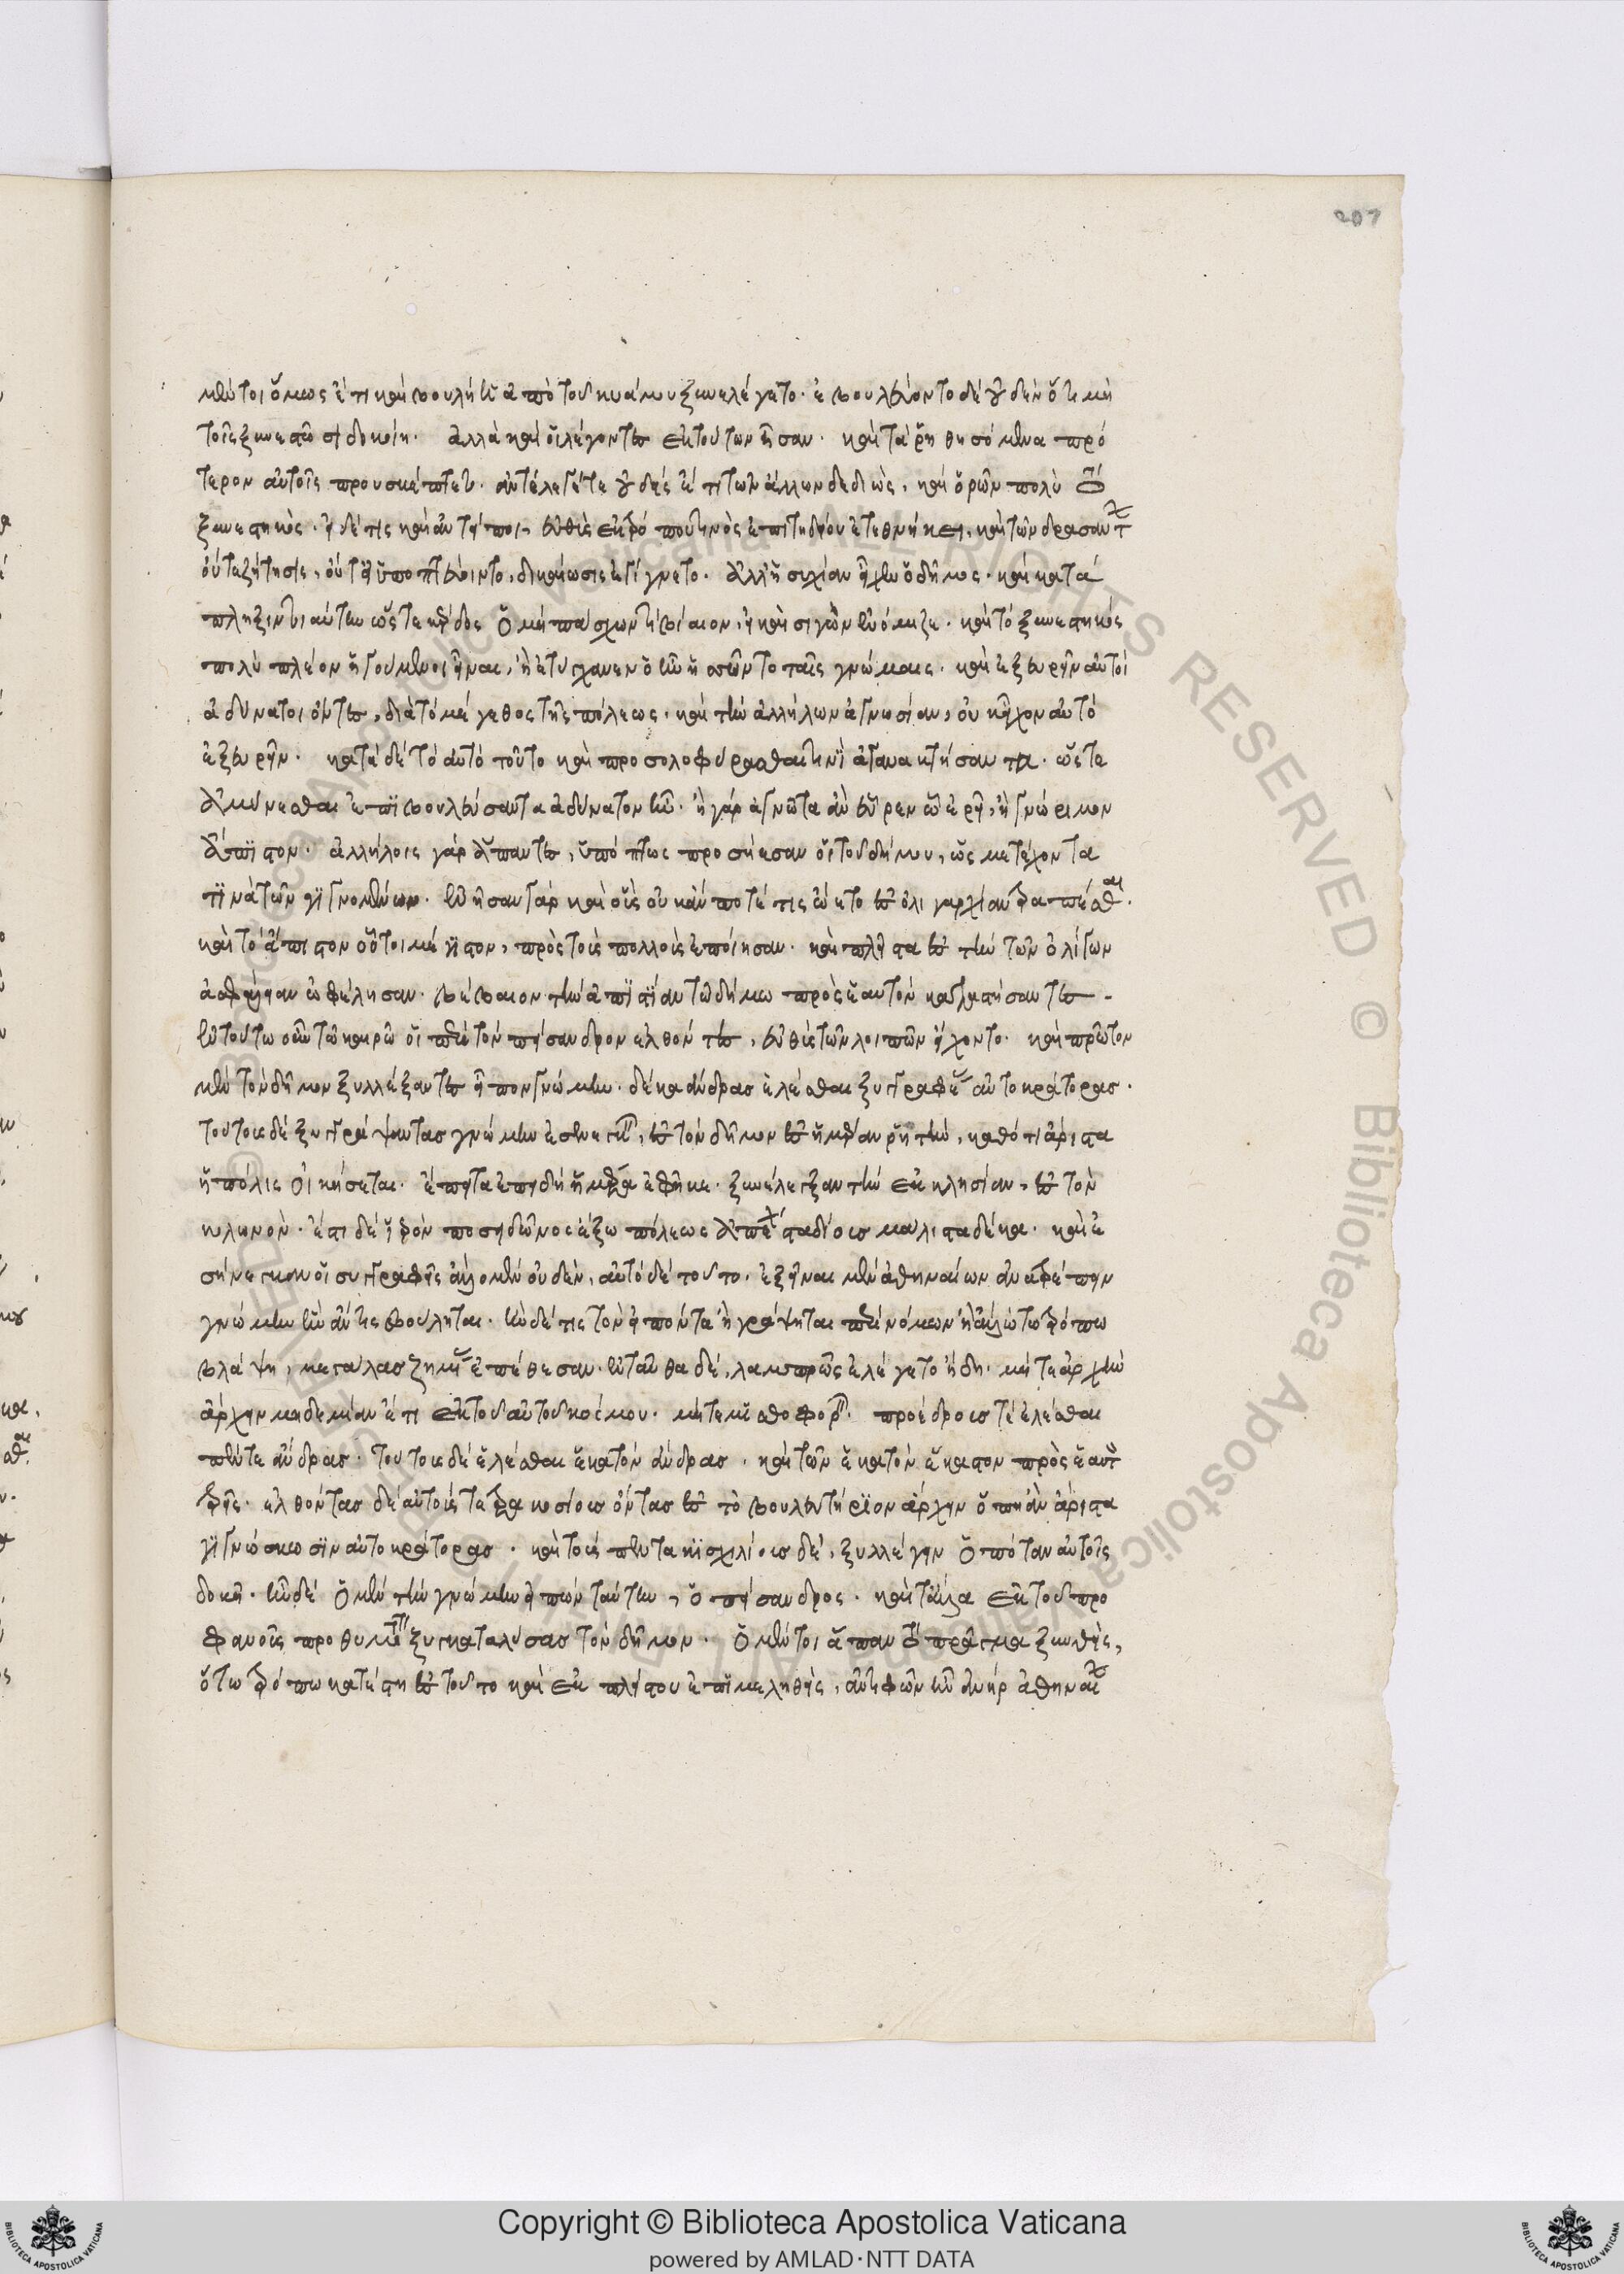 μέντοι ὅμως ἔτι καὶ βουλὴ ἡ ἀπὸ τοῦ κυάμου ξυνελέγετο· ἐβουλεύοντο δὲ οὐδὲν ὅτι μὴ
τοῖς ξυνεστῶσι δοκοίη. ἀλλὰ καὶ οἱ λέγοντες ἐκ τούτων ἦσαν. καὶ τὰ ῥηθησόμενα πρό
τερον αὐτοῖς προυσκέπτετο. ἀντέλεγέ τε οὐδεὶς ἔτι τῶν ἄλλων δεδιὼς, καὶ ὁρῶν πολὺ τὸ
ξυνεστηκός. εἰ δέ τις καὶ ἀντείποι, εὐθὺς ἐκ τρόπου τινὸς ἐπιτηδείου ἐτεθνήκει, καὶ τῶν δρασάντων
οὔτε ζήτησις, οὔτ' εἰ ὑποπτεύοιντο, δικαίωσις ἐγίγνετο. ἀλλ' ἡσυχίαν εἶχεν ὁ δῆμος. καὶ κατά
πληξιν τοιαύτην ὥστε κέρδος ὁ μὴ πάσχων τι βίαιον, εἰ καὶ σιγῶν ἐνόμιζε. καὶ τὸ ξυνεστηκός
πολὺ πλέον ἡγούμενοι εἶναι, ἢ ἐτύγχανεν ὂν ἡσσῶντο ταῖς γνώμαις. καὶ ἐξευρεῖν αὐτοὶ
ἀδύνατοι ὄντες, διὰ τὸ μέγεθος τῆς πόλεως. καὶ τὴν ἀλλήλων ἀγνωσίαν, οὐκ εἶχον αὐτὸ
ἐξευρεῖν. κατὰ δὲ τὸ αὐτὸ τοῦτο καὶ προσολοφύρασθαι τινὶ ἀγανακτήσαντα. ὥστε
ἀμύνεσθαι ἐπιβουλεύσαντα ἀδύνατον ἦν. ἢ γὰρ ἀγνῶτα ἂν εὗρεν ᾧ ἐρεῖ, ἢ γνώριμον
ἄπιστον. ἀλλήλοις γὰρ ἅπαντες, ὑπόπτως προσῄεσαν οἱ τοῦ δήμου, ὡς μετέχοντα
τινὰ τῶν γιγνομένων. ἐνῆσαν γὰρ καὶ οἷς οὐκ ἄν ποτέ τις ᾤετο ἐς ὀλιγαρχίαν τραπέσθαι.
καὶ τὸ ἄπιστον οὗτοι μέγιστον, πρὸς τοὺς πολλοὺς ἐποίησαν. καὶ πλεῖστα ἐς τὴν τῶν ὀλίγων
ἀσφάλειαν ὠφέλησαν. βέβαιον τὴν ἀπιστίαν τῷ δήμῳ πρὸς ἑαυτὸν καταστήσαντες –
ἐν τούτῳ οὖν τῷ καιρῷ οἱ περὶ τὸν πείσανδρον ἐλθόντες, εὐθὺς τῶν λοιπῶν εἴχοντο. καὶ πρῶτον
μὲν τὸν δῆμον ξυλλέξαντες εἶπον γνώμην. δέκα ἄνδρας ἑλέσθαι ξυγγραφέας αὐτοκράτορας.
τούτους δὲ ξυγγράψαντας γνώμην ἐσενεγκεῖν, ἐς τὸν δῆμον ἐς ἡμέραν ῥητὴν, καθ' ὅ τι ἄριστα
ἡ πόλις οἰκήσεται. ἔπειτα ἐπειδὴ ἡ ἡμέρα ἐφῆκε. ξυνέλεξαν τὴν ἐκκλησίαν, ἐς τὸν
κολωνόν. ἔστι δὲ ἱερὸν ποσειδῶνος ἔξω πόλεως ἀπέχον σταδίους μάλιστα δέκα. καὶ ἐ
σήνεγκαν οἱ συγγραφεῖς ἄλλο μὲν οὐδὲν, αὐτὸ δὲ τοῦτο. ἐξεῖναι μὲν ἀθηναίων ἀνατρέπειν
γνώμην ἣν ἄν τις βούληται. ἢν δέ τις τὸν εἰπόντα ἢ γράψηται παρανόμων ἢ ἄλλῳ τῳ τρόπῳ
βλάψῃ, μεγάλας ζημίας ἐπέθεσαν. ἐνταῦθα δὲ, λαμπρῶς ἐλέγετο ἤδη. μήτε ἀρχὴν
ἄρχειν μηδεμίαν ἔτι ἐκ τοῦ αὐτοῦ κόσμου. μήτε μισθοφορεῖν. προέδρους τὲ ἑλέσθαι
πέντε ἄνδρας. τούτους δὲ ἑλέσθαι ἑκατὸν ἄνδρας. καὶ τῶν ἑκατὸν ἕκαστον πρὸς ἑαυτὸν
τρεῖς. ἐλθόντας δὲ αὐτοὺς τετρακοσίους ὄντας ἐς τὸ βουλευτήριον ἄρχειν ὅπη ἂν ἄριστα
γιγνώσκωσιν αὐτοκράτορας. καὶ τοὺς πεντακισχιλίους δὲ, ξυλλέγειν ὁπόταν αὐτοῖς
δοκῇ. ἦν δὲ ὁ μὲν τὴν γνώμην εἰπὼν ταύτην, ὁ πείσανδρος. καὶ τἆλλα ἐκ τοῦ προ
φανοῦς προθυμότατα ξυγκαταλύσας τὸν δῆμον. ὁ μέντοι ἅπαν τὸ πρᾶγμα ξυνθεὶς,
ὅτῳ τρόπῳ κατέστη ἐς τοῦτο καὶ ἐκ πλείστου ἐπιμεληθεὶς, ἀντιφῶν ἦν ἀνὴρ ἀθηναίων
207